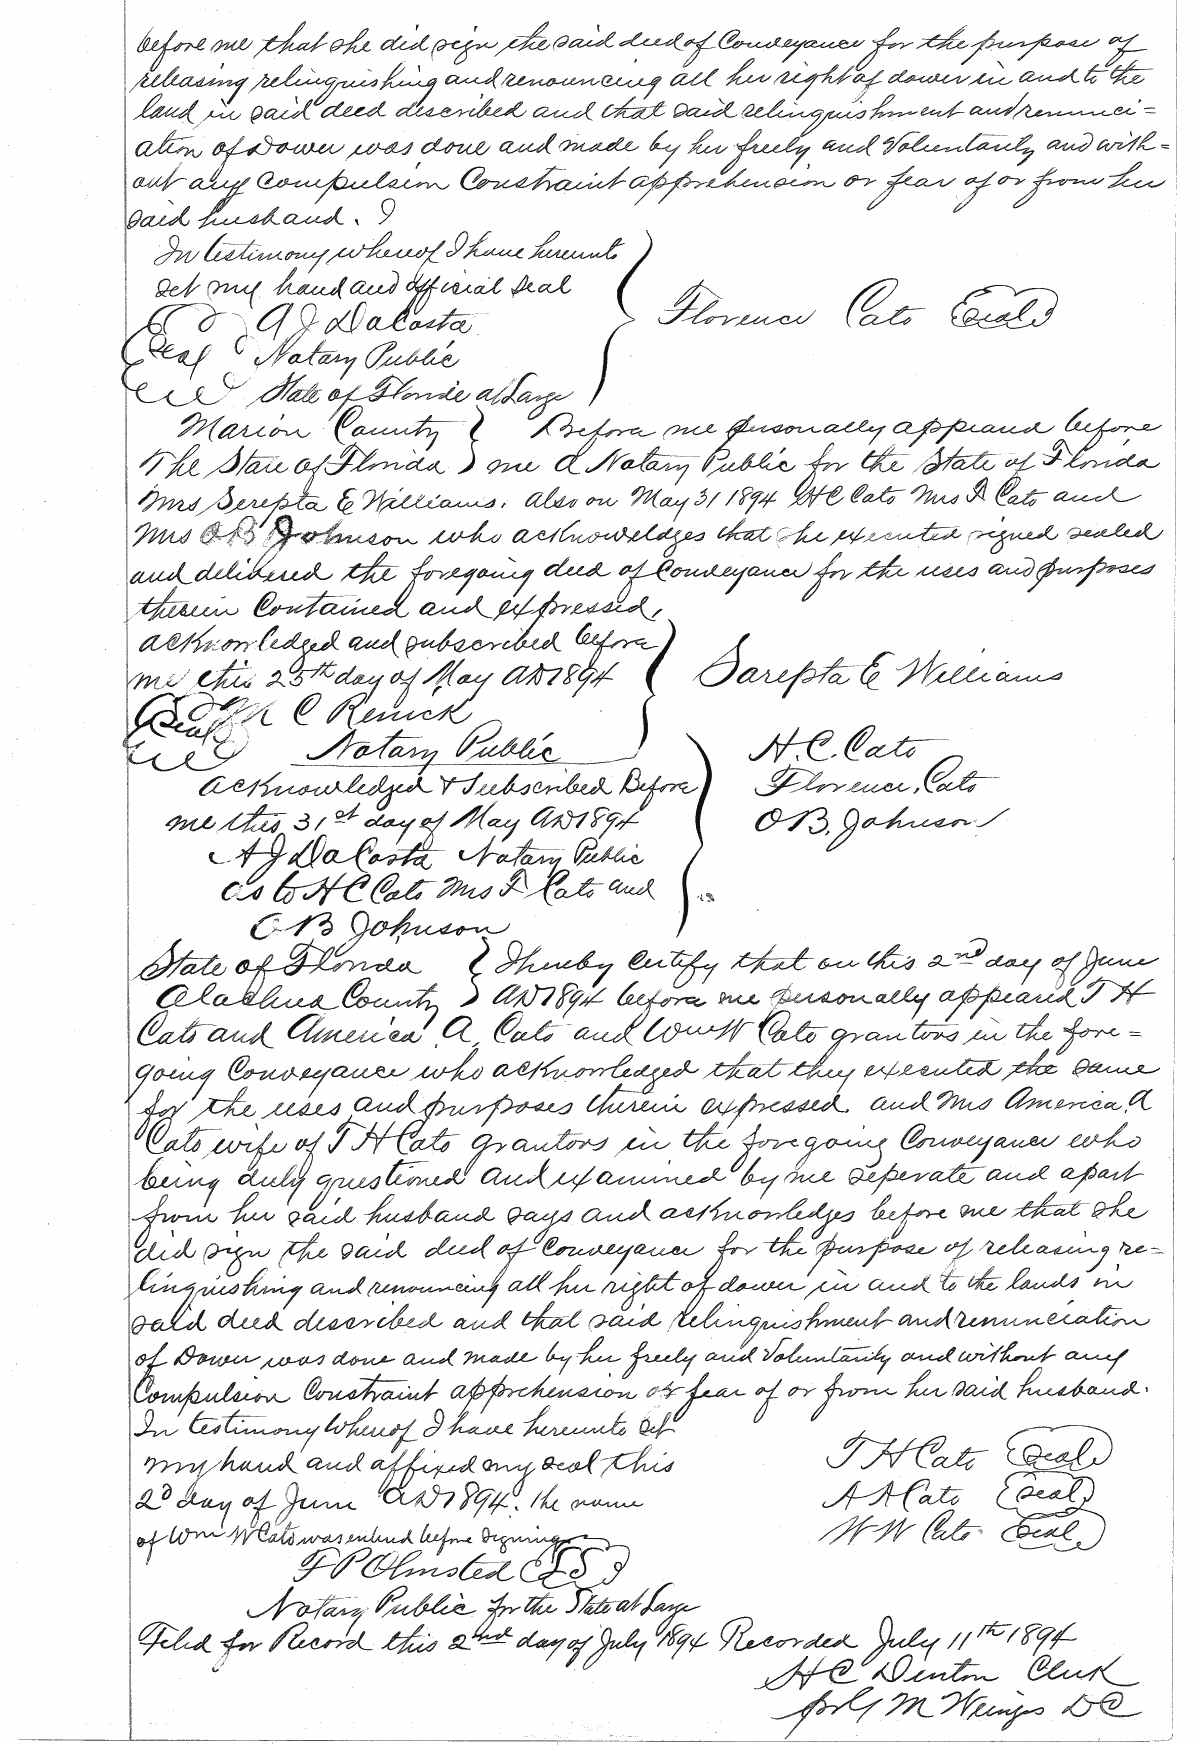 before me that she did sign the said deed of Conveyance for the purpose of
releasing relinquishing and renouncing all her right of dower in and to the
land in said deed described and that said relinquishment and renunci=
ation of Dower was done and made by her freely and Voluntarily and with=
out any Compulsion Constraint apprehension or fear of or from her
said husband.
In testimony whereof I have hereunto
set my hand and official seal
A J DaCosta
Seal Notary Public
State of Florida at Large
Florence Cato Seal
Marion County } Before me personally appeared before
The State of Florida } me a Notary Public for the State of Florida
Mrs Serepta E Williams. also on May 31 1894 H C Cato Mrs F Cato and
Mrs O B Johnson who acknowledges that she executed signed sealed
and delivered the foregoing deed of Conveyance for the uses and purposes
therein Contained and expressed,
acknowledged and subscribed before
me this 25th day of May AD 1894
Sarepta E Williams
Seal C Renick
Notary Public
H. C. Cato
Florence. Cato
O B. Johnson
acknowledged & Subscribed Before
me this 31st day of May AD 1894
A J DaCosta Notary Public
as to H C Cato Mrs F Cato and
O B Johnson
State of Florida } I hereby Certify that on this 2nd day of June
Alachua County } AD 1894 before me personally appeared T H
Cato and America A Cato and Wm W Cato grantors in the fore=
going Conveyance who acknowledged that they executed the same
for the uses and purposes therein expressed and Mrs America A
Cato wife of T H Cato grantors in the foregoing Conveyance who
being duly questioned and examined by me seperate and apart
from her said husband says and acknowledges before me that she
did sign the said deed of Conveyance for the purpose of releasing re=
linquishing and renouncing all her right of dower in and to the lands in
said deed described and that said relinquishment and renunciation
of Dower was done and made by her freely and Voluntarily and without any
Compulsion Constraint apprehension or fear of or from her said husband.
In testimony Whereof I have hereunto set
my hand and affixed my seal this
2d day of June AD 1894. the name
of Wm W Cato was entered before signing
T H Cato Seal
A A Cato Seal
W W Cato Seal
F P Olmsted LS
Notary Public for the State at Large
Filed for Record this 2nd day of July 1894 Recorded July 11th 1894
H C Denton Clerk
M DC